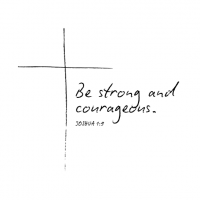 Be strong and
courageous.
JOSHUA 1:9